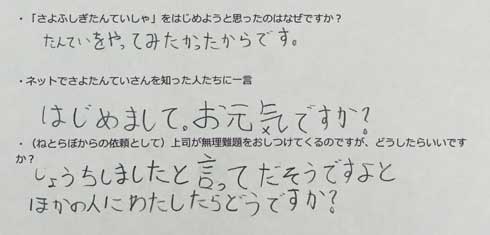 ・「さよふしぎたんていしゃ」をはじめようと思ったのはなぜですか？
たんていをやってみたかったからです。
・ネットでさよたんていさんを知った人たちに一言
はじめまして。お元気ですか？
・（ねとらぼからの依頼として）上司が無理難題をおしつけてくるのですが、どうしたらいいです
か？
しょうちしましたと言ってだそうですよと
ほかの人にわたしたらどうですか？